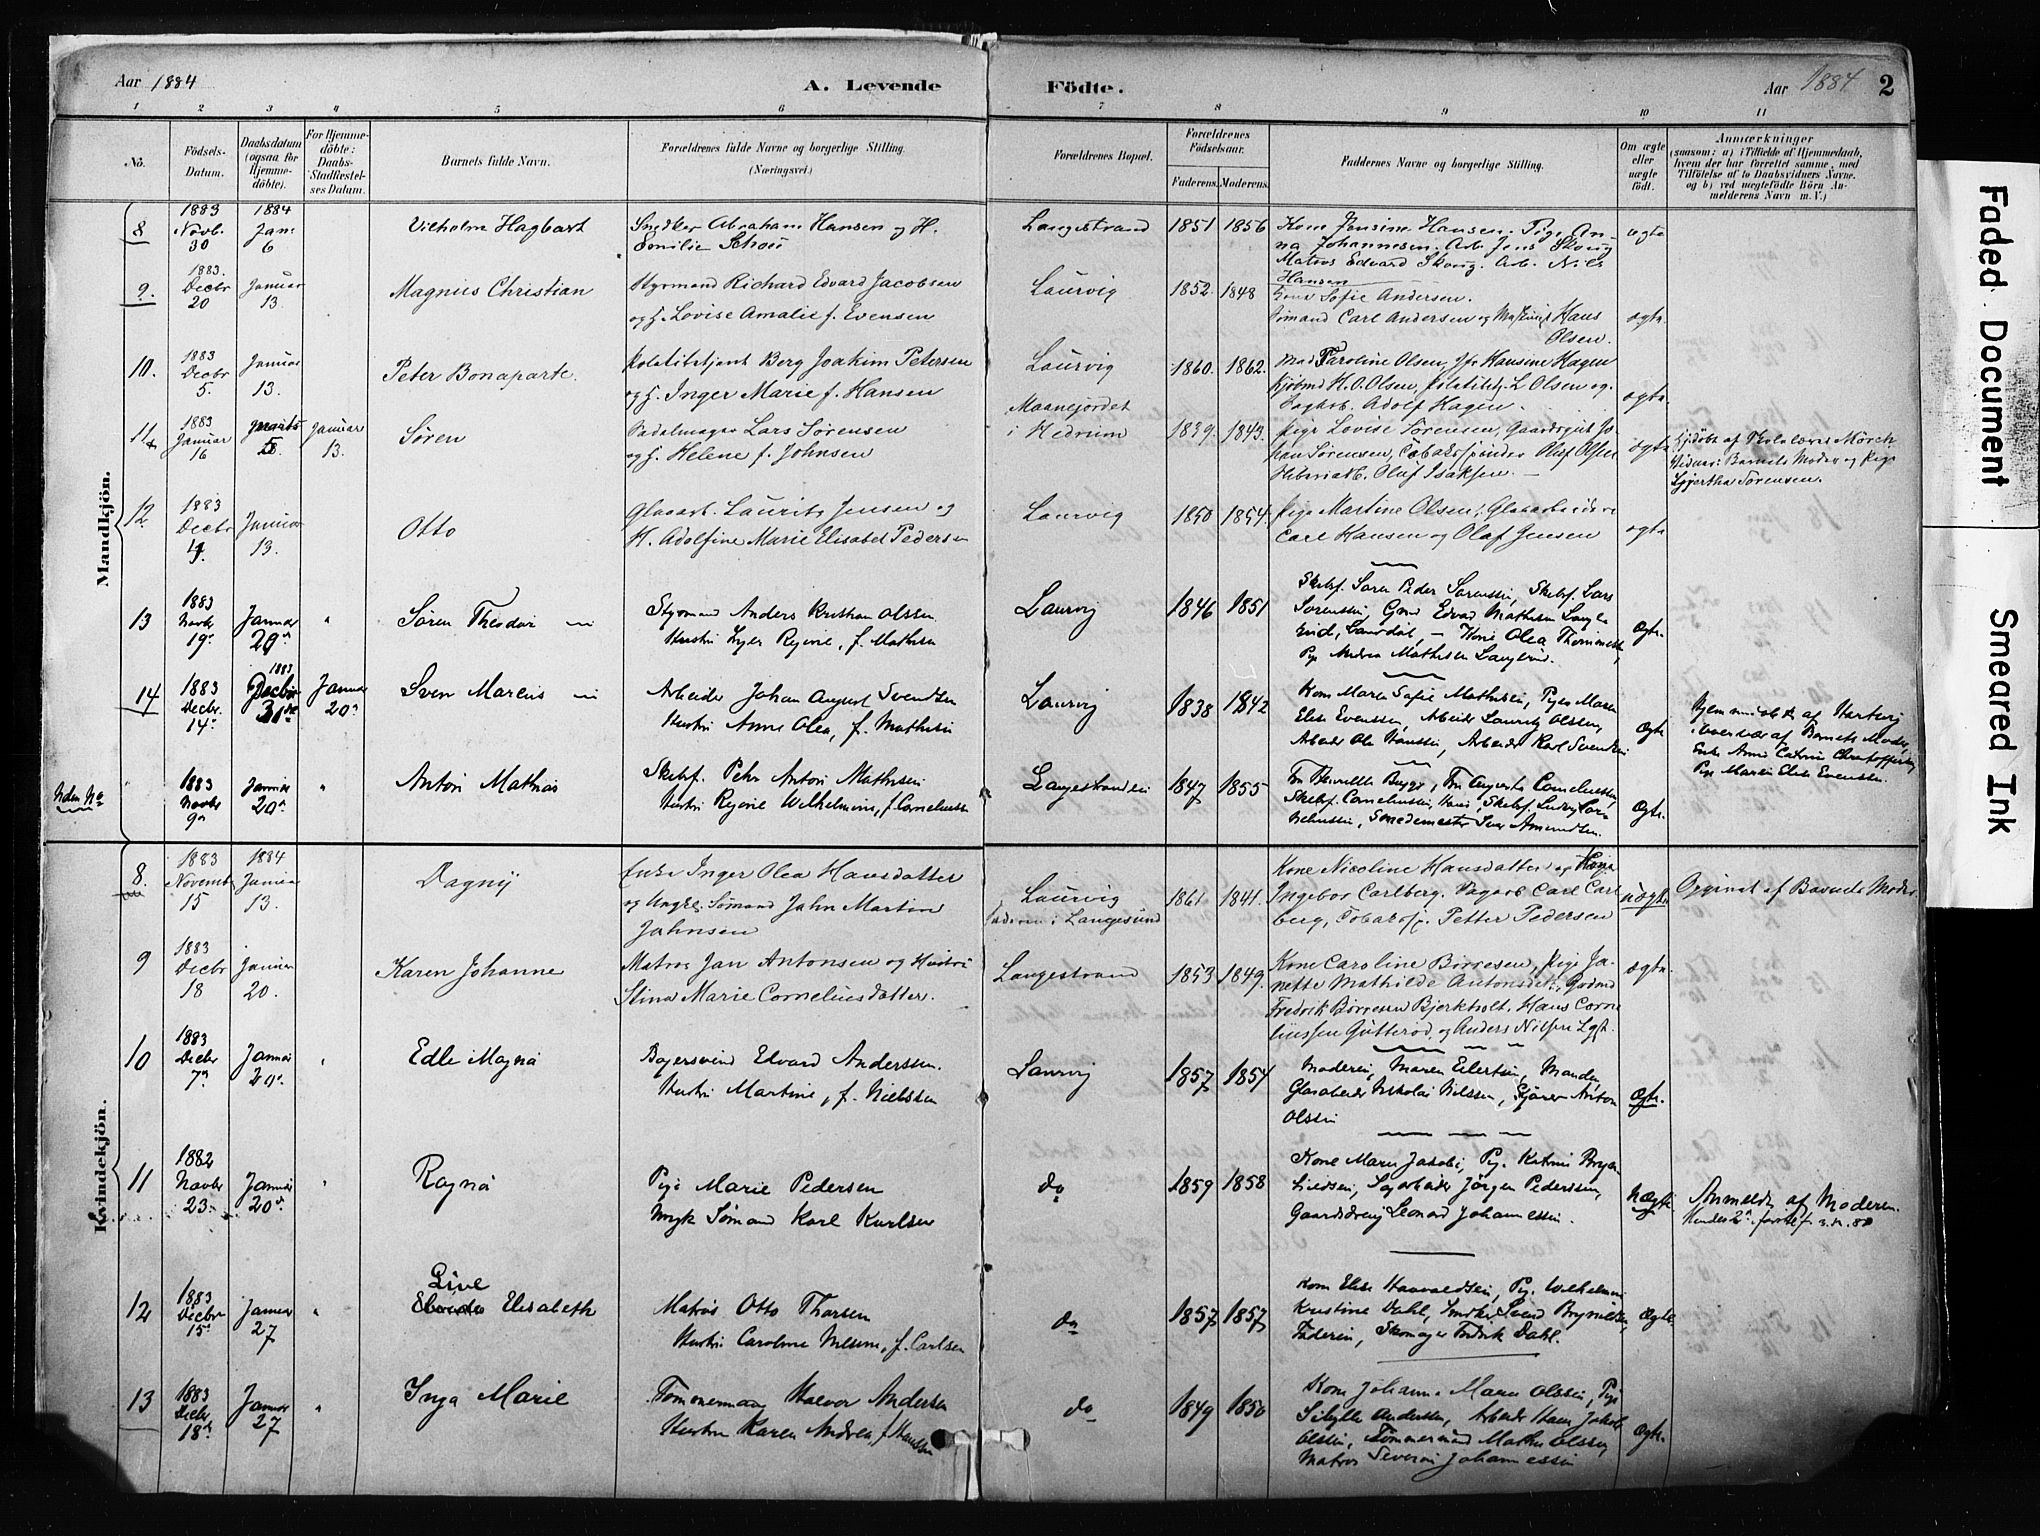 Aar 1884
A. Levende
Födte.
Aar 1884
2
1 2 3 4 5 6 7 8 9 10 11
No.
Födsels-
Datum.
Daabsdatum
(ogsaa for
Hjemme-
döbte).
For Hjemme-
döbte:
Daabs-
Stadfæstel-
ses Datum.
Barnets fulde Navn.
Forældrenes fulde Navne og borgerlige Stilling.
(Næringsvei.)
Forældrenes Bopæl.
Forældrenes
Födselsaar.
Faderens. Moderens.
Faddernes Navne og borgerlige Stilling.
Om ægte
eller
uægte
födt.
Anmærkninger
(saasom: a) i Tilfælde af Hjemmedaab,
hvem der har forrettet samme, med
Tilföielse af to Daabsvidners Navne.
og b) ved uægtefödte Börn An-
melderens Navn m. V.)
Mandkjön.
8
1883
Novb.
30
1884
Jan.
6
Vilhelm Hagbart
Snedker Abraham Hansen og H.
Emilie
Langestrand
1851 1856
Kone Jensine Hansen. Pige An-
na Johannesen. Arb. Jens Skoug
Matros Edvard Skoug. Arb. Nils
Hansen
ægte
9.
1883.
Decbr
20
Januar
13.
Magnus Christian
Styrmand Richard Edvard Jacobsen
og H. Lovise Amalie f. Evensen
Laurvig
1852. 1848
Kone Sofie Andersen.
Sømand Carl Andersen og Hans
Olsen.
ægte.
10.
1883
Decbr
5.
Januar
13.
Peter Bonaparte.
Politibetjent Berg Joakim Petersen
og H. Inger Marie f. Hansen
Laurvig
1860. 1862.
Mad Caroline Olsen, Jfr Hansine Hagen
Kjöbmd H. O. Olsen, L Olsen og
Adolf Hagen.
ægte.
11
1883
Januar
16
Januar
13.
Sören
Sadelmager Lars Sørensen
og H. Helene f. Johnsen
Maanejordet
i Hedrum
1839. 1843.
Pige Lovise Sörensen, Gaardsgut Jo-
han Sørensen, Tobaksspinder Oluf Olsen
Oluf Isaksen.
ægte
Hjdöbt af Skolelærer Mörch
Vidner: Barnets Moder og Pige
Sørensen.
12.
1883
Decbr
4.
Januar
13.
Otto
Glasarb. Lauritz Jensen og
H. Adolfine Marie Elisabet Pedersen
Laurvig
1850 1854.
Pige Martine Olsen, Glasarbeidere
Carl Hansen og Olaf Jensen
ægte
13
1883
Novbr
19.
Januar
20
Søren Theodor
Styrmand Anders Kristian Olsen
Hustru Regine, f. Mathisen
Laurvig
1846 1851
Skibsf. Søren Peder Sørensen, Skibsf. Lars
Sørensen, Edvard Mathisen
Kone Olea
Pige Andrea Mathisen
Ægte.
14
1883
Decbr.
14.
1883
Decbr
31
Januar
20
Sven Marcus
Arbeider Johan August Svendsen
Hustru Anne Olea, f. Mathisen
Laurvig
1838 1842
Kone Maren Sofie Mathisen, Pige Maren
Elise Evensen, Arbeider Lauritz Olsen,
Arbeider Ole Hansen, Arbeider Karl Svendsen
Ægte
Hjemmedöbt af
i Overvær af Barnets Moder,
Enke Anne Catrine
Pige Maren Elise Evensen.
Uden No
1883
Novbr
9
Januar
20
Anton Mathias
Skibsf. Peter Anton Mathisen
Hustru Regine Wilhelmine, f. Corneliussen
Langestranden
1847 1855
Fru Bugge, Fru Augusta Corneliussen,
Skibsf. Corneliussen, Skibsf. Ludvig Cor-
neliussen, Smedemester Iver Amundsen.
Ægte.
Kvindekjön.
8.
1883
Novemb.
15
1884
Januar
13.
Dagny
Enke Inger Olea Hansdatter
og Ungkl. Sømand John Martin
Johnsen
Laurvig
Faderen i Langesund
1861 1841.
Kone Nicoline Hansdatter og Kone
Ingebor Carlberg. Sagarb Carl Carl-
berg, Tobaksspi. Petter Pedersen
uægte
Opgivet af Barnets Moder.
9
1883
Decbr
18
Januar
20.
Karen Johanne
Matros Jan Antonsen og Hustru
Stina Marie Corneliusdatter.
Langestrand
1853 1849.
Kone Caroline Börresen, Pige Ja-
nette Mathilde Antonsdtr., Gbdmd
Fredrik Börresen Bjerkholt, Hans Corne-
liussen Gutteröd, og Anders Nilsen
ægte.
10
1883
Decbr
7
Januar
20
Edle Magna
Bagersvend Edvard Anderssen.
Hustru Martine, f. Nielssen
Laurvig
1857 1854
Moderen, Maren Eilertsen, Manden,
Glasarbeider Nikolai Nilssen, Anton
Olssen
Ægte.
11
1882
Novbr
23.
Januar
20
Ragna
Pige Marie Pedersen
Ungk Sømand Karl Karlsen
do
1859 1858
Kone Maren Jakobsen, Pige Katrine
Sagarbeider Jørgen Pederssen,
Gaardsdreng Leonard Johannessen.
Uægte
Anmeldt af Moderen.
12
1883
Decbr
15
Januar
27
Live
Elisabeth
Matros Otto Thorsen
Hustru Caroline, f. Carlsen
do
1857 1857
Kone Elise Haavaldsen, Pige Wilhelmine
Kristine Dahl, Snedker Svend Brynildsen,
Faderen, Skomager Fredrik Dahl.
Ægte.
13
1883
Decbr
18
Januar
27
Inga Marie
Tømmermand Halvor Andersen
Hustru Karen Andrea, f. Hanssen
do
1849 1850
Kone Johanne Maren Olssen, Pige
Sibylle Andersen, Arbeider Hans Jakob
Olssen, Tømmermand Mathis Olssen,
Matros Severin Johannessen
Ægte.
Faded Document
Smeared Ink